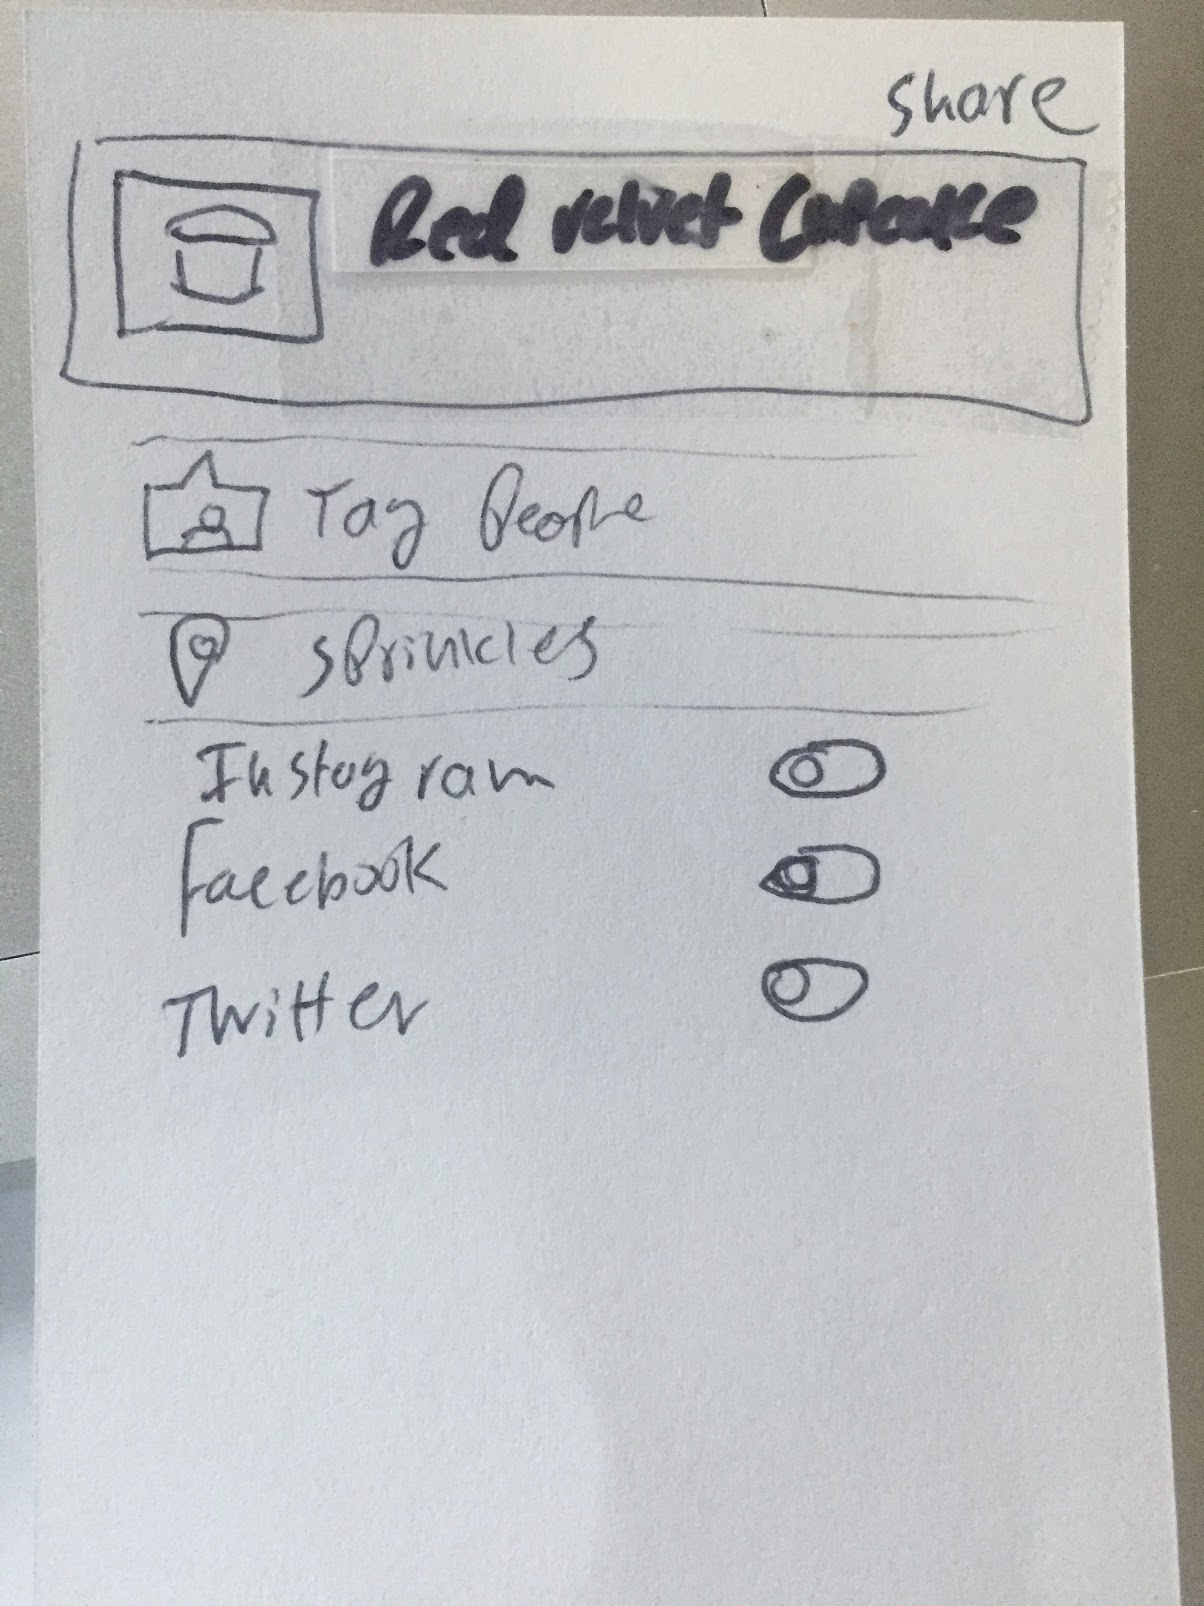 share
Red velvet Cupcake
Tag People
sprinkles
Instagram
Facebook
Twitter